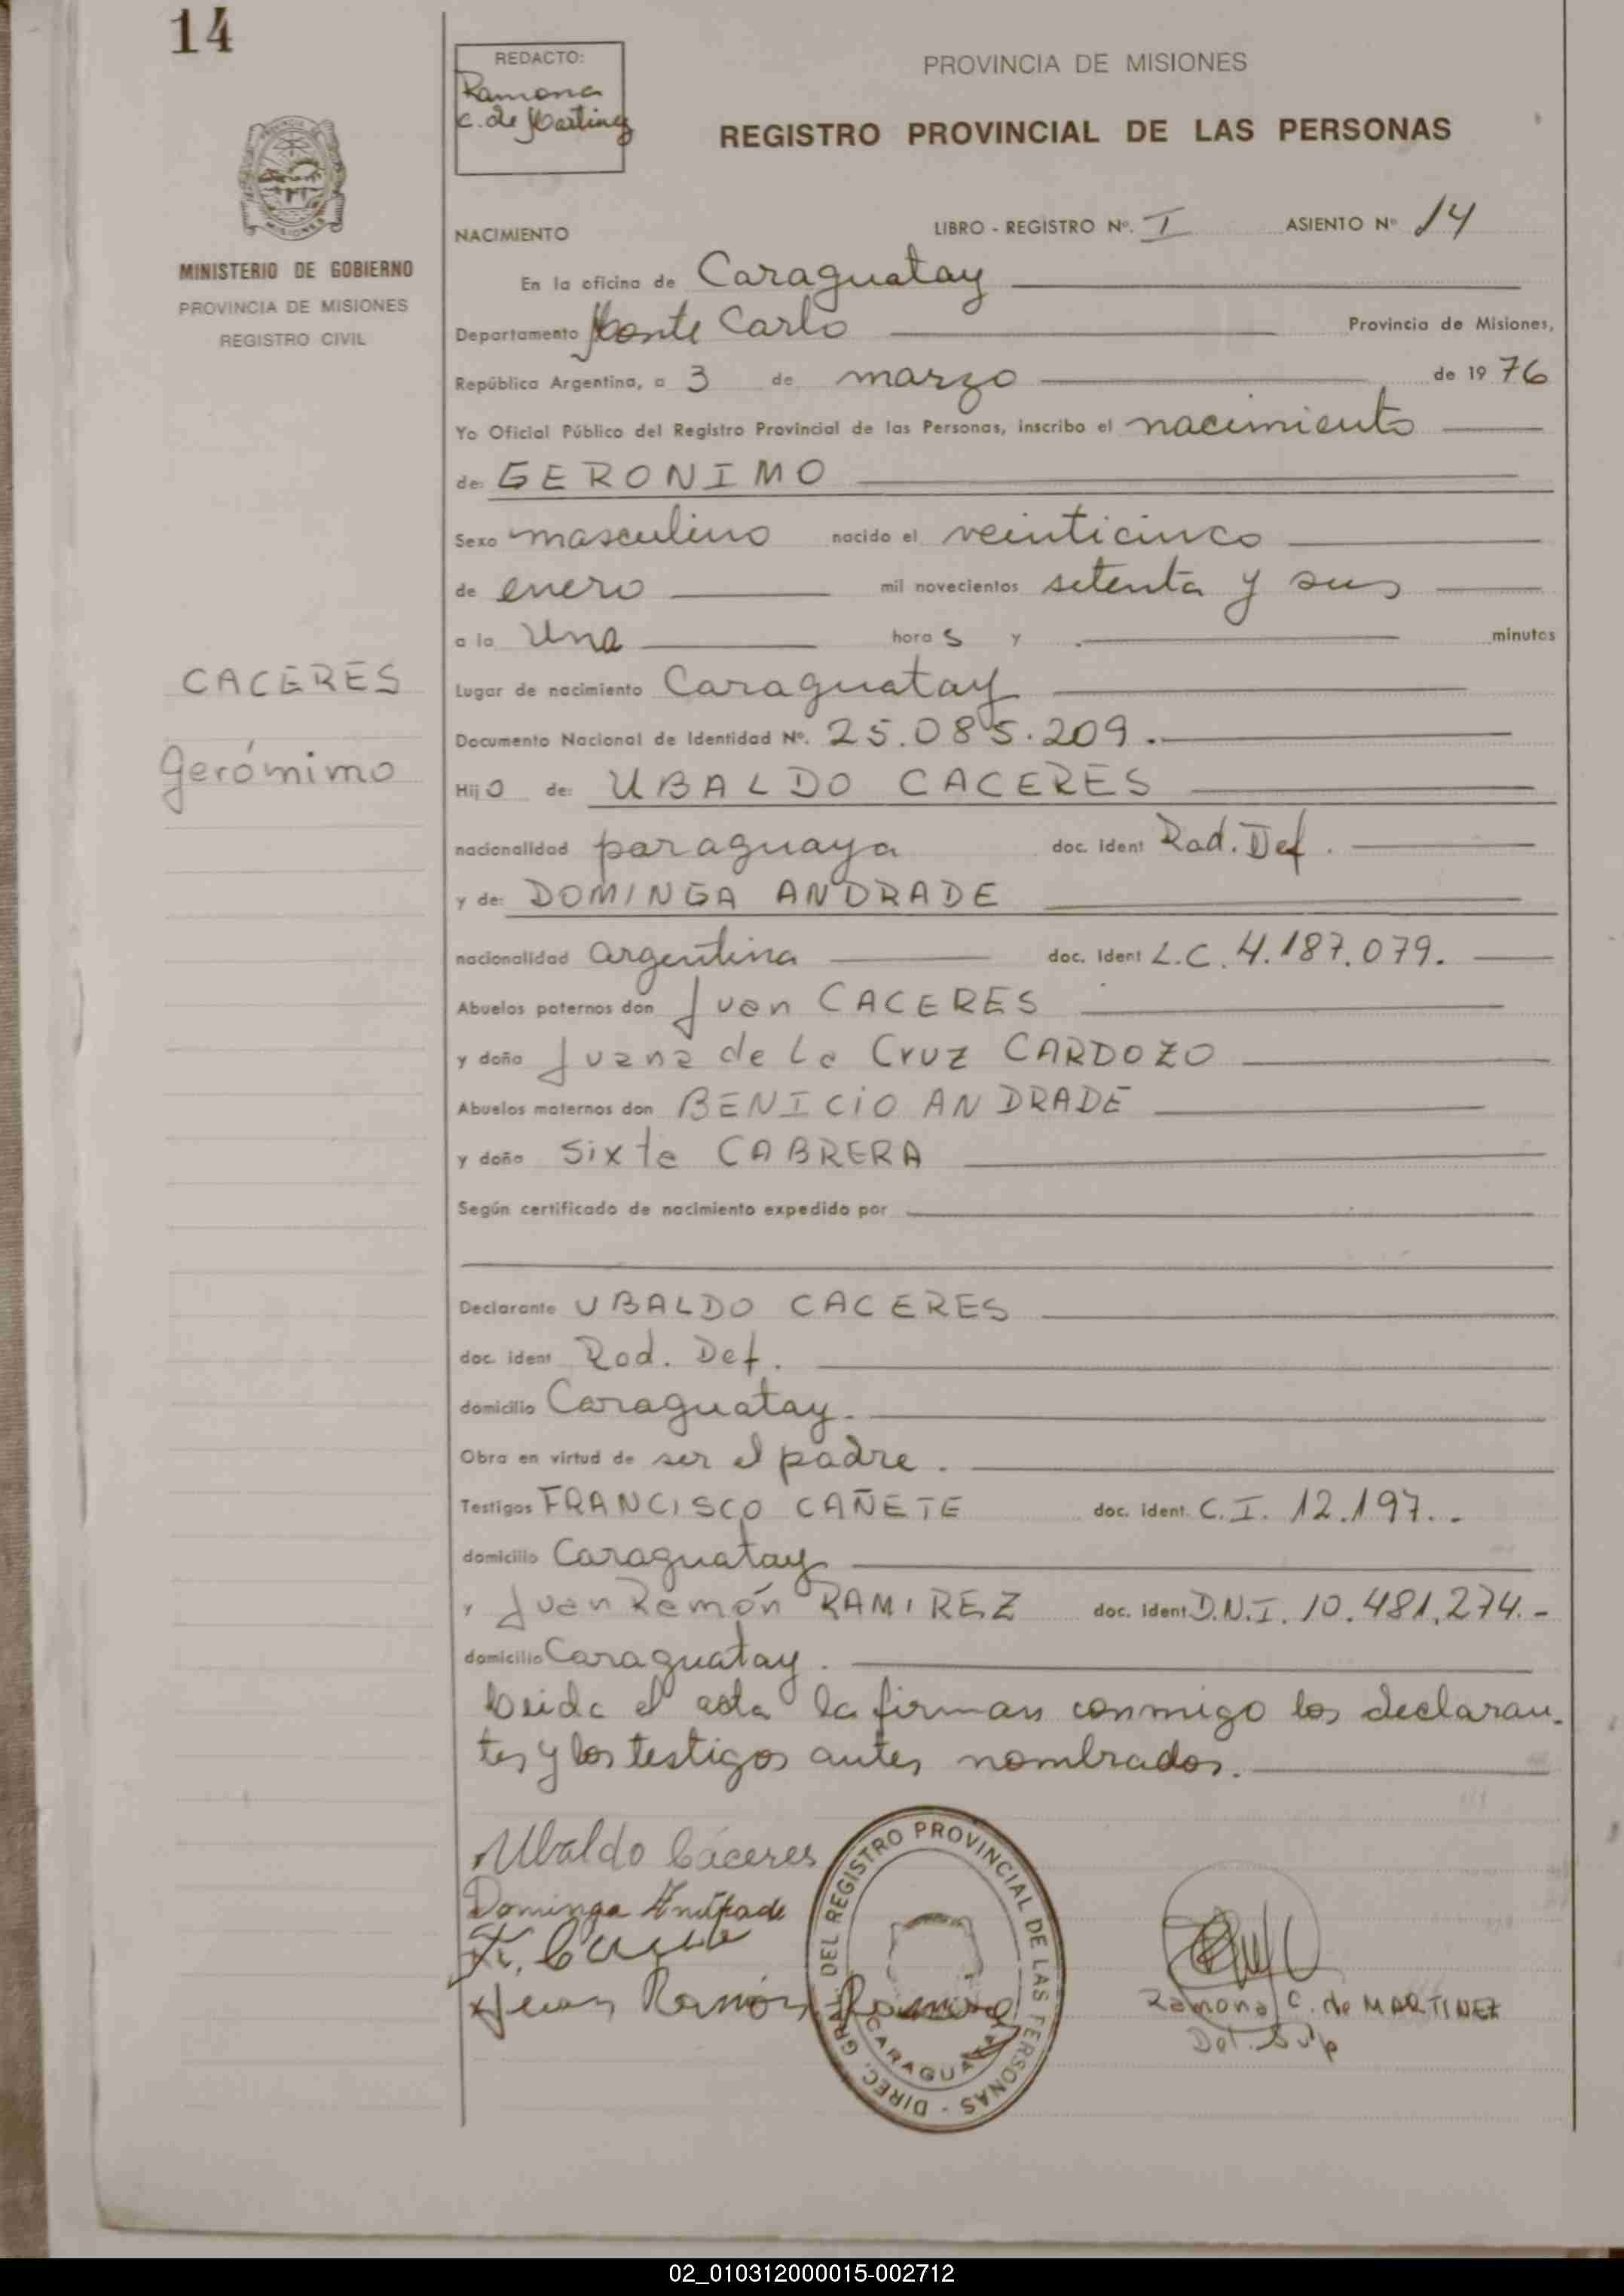 14
REDACTO:
Ramona
C. de Martinez
PROVINCIA DE MISIONES
REGISTRO PROVINCIAL DE LAS PERSONAS
MINISTERIO DE GOBIERNO
PROVINCIA DE MISIONES
REGISTRO CIVIL
NACIMIENTO LIBRO - REGISTRO Nº. I ASIENTO Nº 14
En la oficina de Caraguatay
Departamento Monte Carlo Provincia de Misiones,
República Argentina, a 3 de marzo de 1976
Yo Oficial Público del Registro Provincial de las Personas, inscribo el nacimiento
de: GERONIMO
Sexo masculino nacido el veinticinco
de enero mil novecientos setenta y seis
a la Una horas y minutos
CACERES
Gerónimo
Lugar de nacimiento Caraguatay
Documento Nacional de Identidad Nº. 25.085.209.
Hijo de: UBALDO CACERES
nacionalidad paraguaya doc. ident Rad. Def.
y de: DOMINGA ANDRADE
nacionalidad argentina doc. ident L.C. 4.187.079.
Abuelos paternos don Juan CACERES
y doña Juana de La Cruz CARDOZO
Abuelos maternos don BENICIO ANDRADE
y doña Sixta CABRERA
Según certificado de nacimiento expedido por
Declarante UBALDO CACERES
doc. ident Rad. Def.
domicilio Caraguatay.
Obra en virtud de ser el padre.
Testigos FRANCISCO CAÑETE doc. ident. C.I. 12.197.-
domicilio Caraguatay
y Juan Ramón RAMIREZ doc. ident D.N.I. 10.481.274.-
domicilio Caraguatay.
Leida el acta la firman conmigo los declaran-
tes y los testigos antes nombrados.
Ubaldo Cáceres
Dominga Andrade
Juan Ramón Ramirez
DIREC. GRAL. DEL REGISTRO PROVINCIAL DE LAS PERSONAS -
CARAGUATAY
Ramona C. de MARTINEZ
Del. Sup
02_010312000015-002712